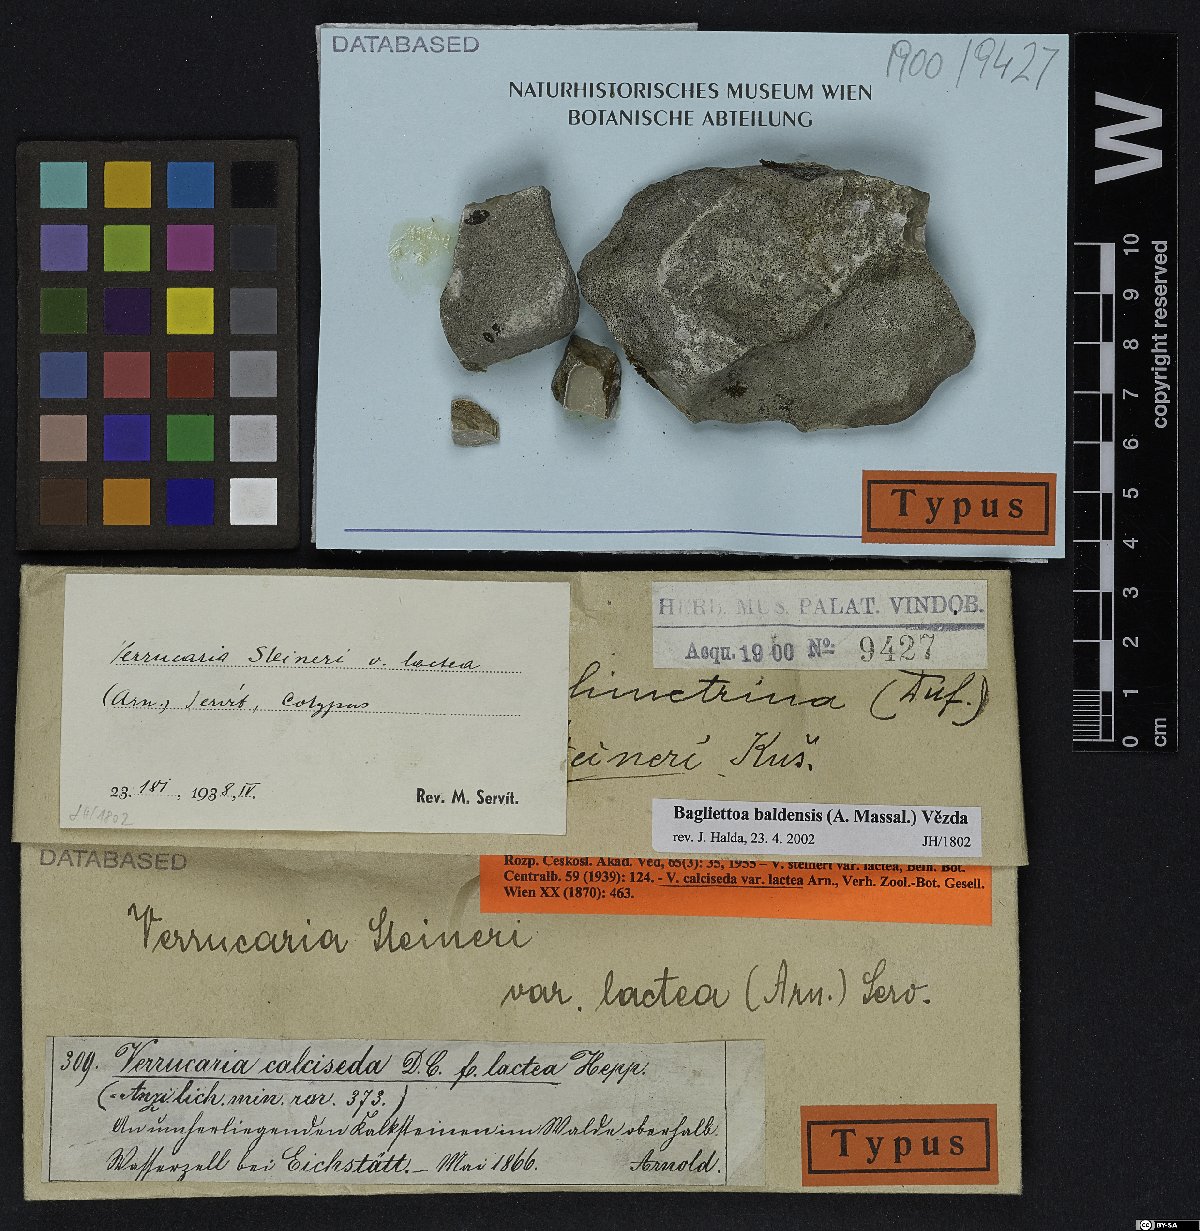 DATABASED
1900/9427
NATURHISTORISCHES MUSEUM WIEN
BOTANISCHE ABTEILUNG
Typus
W
copyright reserved
10
9
8
7
6
5
4
3
2
1
0
cm
HERB. MUS. PALAT. VINDOB.
Acqu. 1900 No. 9427
Verrucaria Steineri v. lactea
(Arn.) Servít, Cotypus
23. , 1938, IV.
Rev. M. Servít.
JH/1802
himetrina (Duf.)
teineri Kuš.
Bagliettoa baldensis (A. Massal.) Vězda
rev. J. Halda, 23. 4. 2002 JH/1802
DATABASED
Rozp. Českosl. Akad. Ved, 65(3): 35, 1955 – V. steineri var. lactea, Beih. Bot.
Centralb. 59 (1939): 124. - V. calciseda var. lactea Arn., Verh. Zool.-Bot. Gesell.
Wien XX (1870): 463.
Verrucaria Steineri
var. lactea (Arn.) Serv.
309. Verrucaria calciseda D.C. f. lactea Hepp.
(Anzi lich. min. rar. 373.)
An umherliegenden Kalksteinen im Walde oberhalb
Wasserzell bei Eichstätt. – Mai 1866. Arnold.
Typus
CC BY-SA